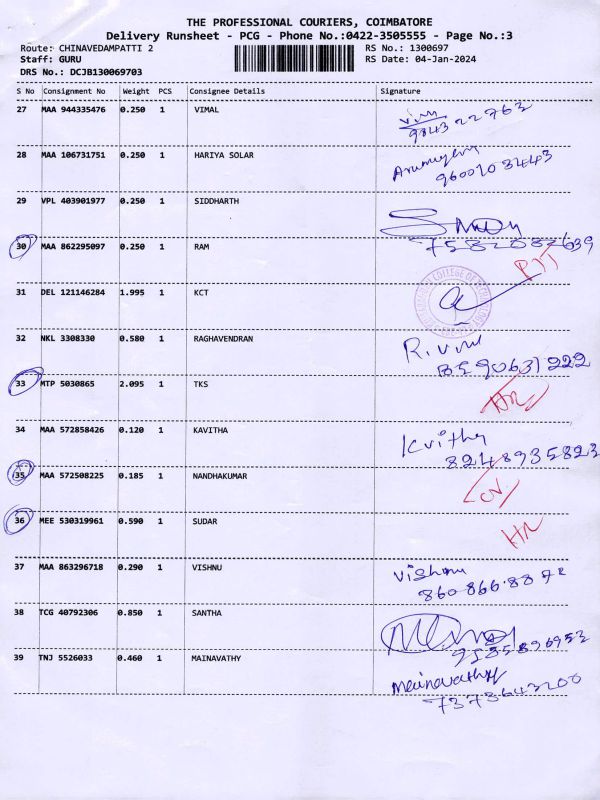 THE PROFESSIONAL COURIERS, COIMBATORE
Delivery Runsheet - PCG - Phone No.:0422-3505555 - Page No.:3
Route: CHINAVEDAMPATTI 2 RS No.: 1300697
Staff: GURU RS Date: 04-Jan-2024
DRS No.: DCJB130069703
S No Consignment No Weight PCS Consignee Details Signature
27 MAA 944335476 0.250 1 VIMAL
28 MAA 106731751 0.250 1 HARIYA SOLAR
29 VPL 403901977 0.250 1 SIDDHARTH
30 MAA 862295097 0.250 1 RAM
31 DEL 121146284 1.995 1 KCT
32 NKL 3308330 0.580 1 RAGHAVENDRAN
33 MTP 5030865 2.095 1 TKS
34 MAA 572858426 0.120 1 KAVITHA Kvitha
8248935823
35 MAA 572508225 0.185 1 NANDHAKUMAR
36 MEE 530319961 0.590 1 SUDAR
37 MAA 863296718 0.290 1 VISHNU Vishnu
38 TCG 40792306 0.850 1 SANTHA
39 TNJ 5526033 0.460 1 MAINAVATHY Mainavathy
7373643200